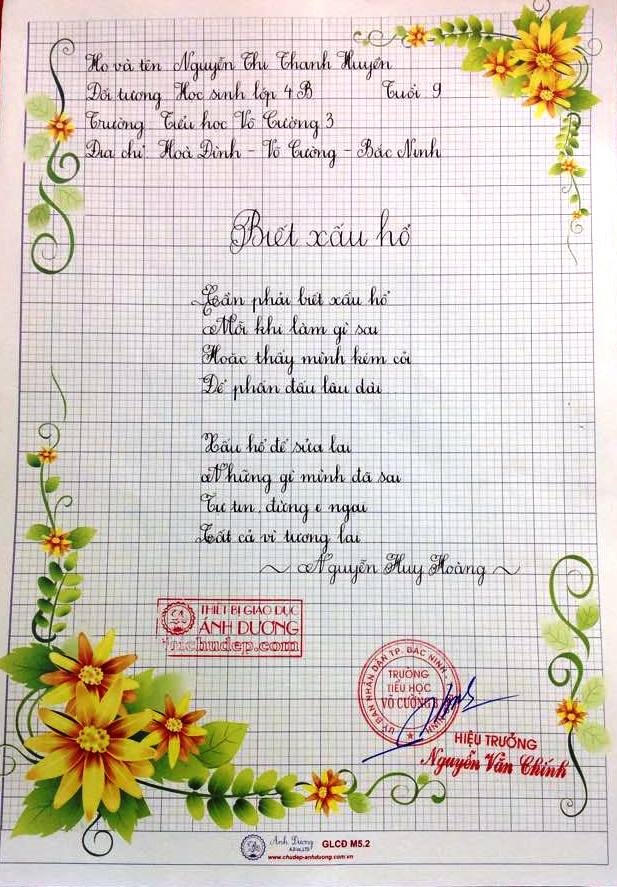 Họ và tên Nguyễn Thị Thanh Huyền
Đối tượng Học sinh lớp 4B Tuổi 9
Trường Tiểu học Võ Cường 3
Địa chỉ: Hoà Đình - Võ Cường - Bắc Ninh
Biết xấu hổ
Cần phải biết xấu hổ
Mỗi khi làm gì sai
Hoặc thấy mình kém cỏi
Để phấn đấu lâu dài
Xấu hổ để sửa lại
Những gì mình đã sai
Tự tin, đừng e ngại
Tất cả vì tương lai
~ Nguyễn Huy Hoàng ~
THIẾT BỊ GIÁO DỤC
ÁNH DƯƠNG
chudep.com
ỦY BAN NHÂN DÂN TP. BẮC NINH
TRƯỜNG
TIỂU HỌC
VÕ CƯỜNG 3
HIỆU TRƯỞNG
Nguyễn Văn Chính
Ánh Dương
GLCĐ M5.2
www.chudep-anhduong.com.vn